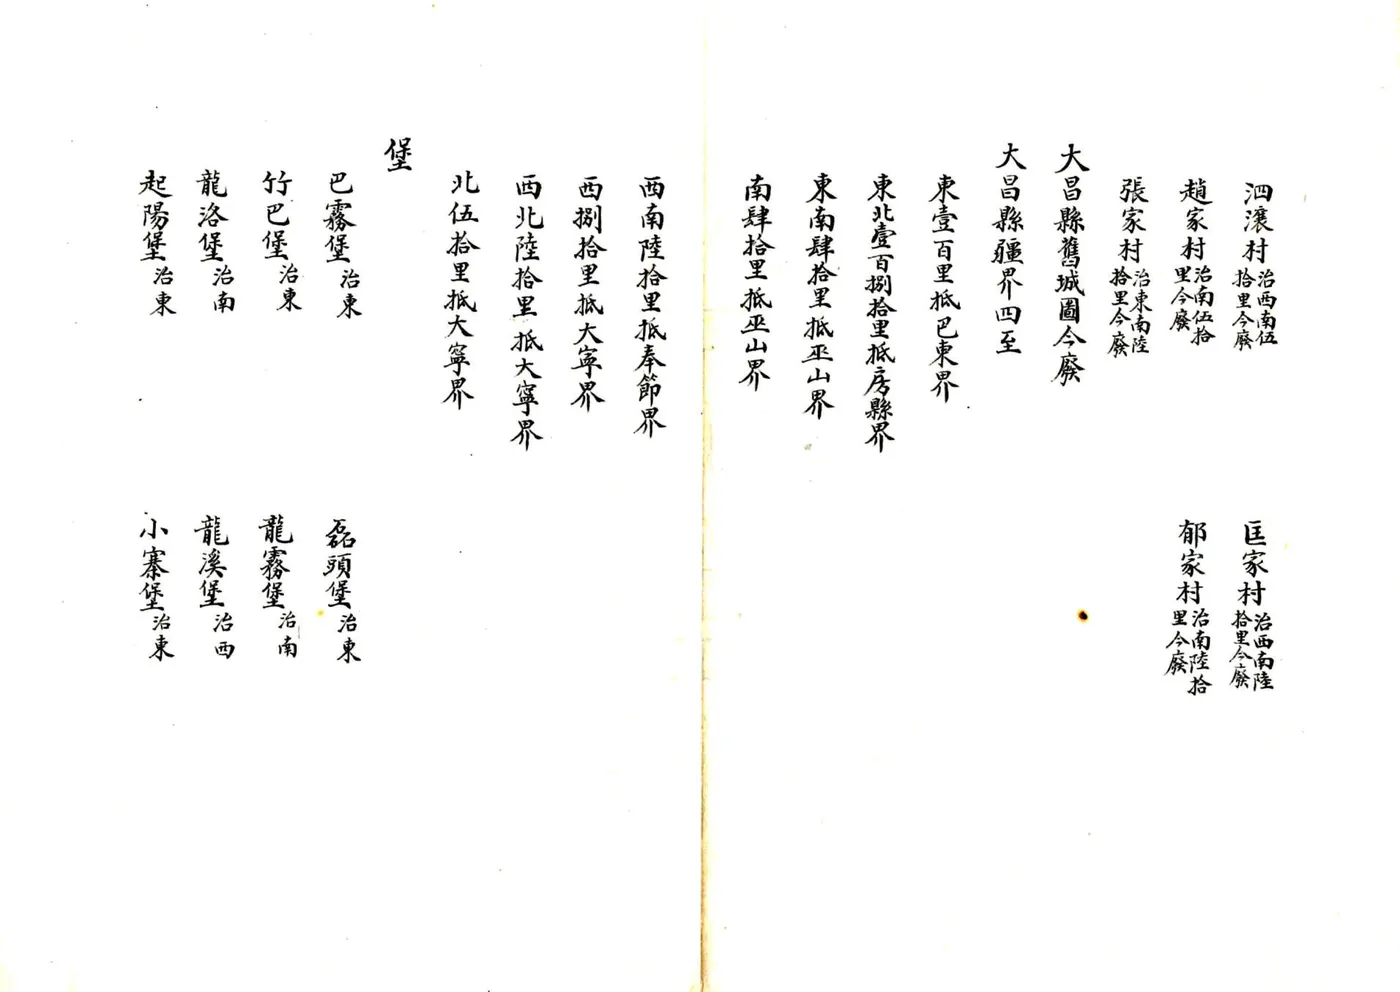 泗瀼村治西南伍拾里今廢
匡家村治西南陸拾里今廢
趙家村治南伍拾里今廢
郁家村治南陸拾里今廢
張家村治東南陸拾里今廢
大昌縣舊城圖今廢
大昌縣疆界四至
東壹百里抵巴東界
東北壹百捌拾里抵房縣界
東南肆拾里抵巫山界
南肆拾里抵巫山界
西南陸拾里抵奉節界
西捌拾里抵大寧界
西北陸拾里抵大寧界
北伍拾里抵大寧界
堡
巴霧堡治東
磊頭堡治東
竹巴堡治東
龍霧堡治南
龍洛堡治南
龍溪堡治西
起陽堡治東
小寨堡治東